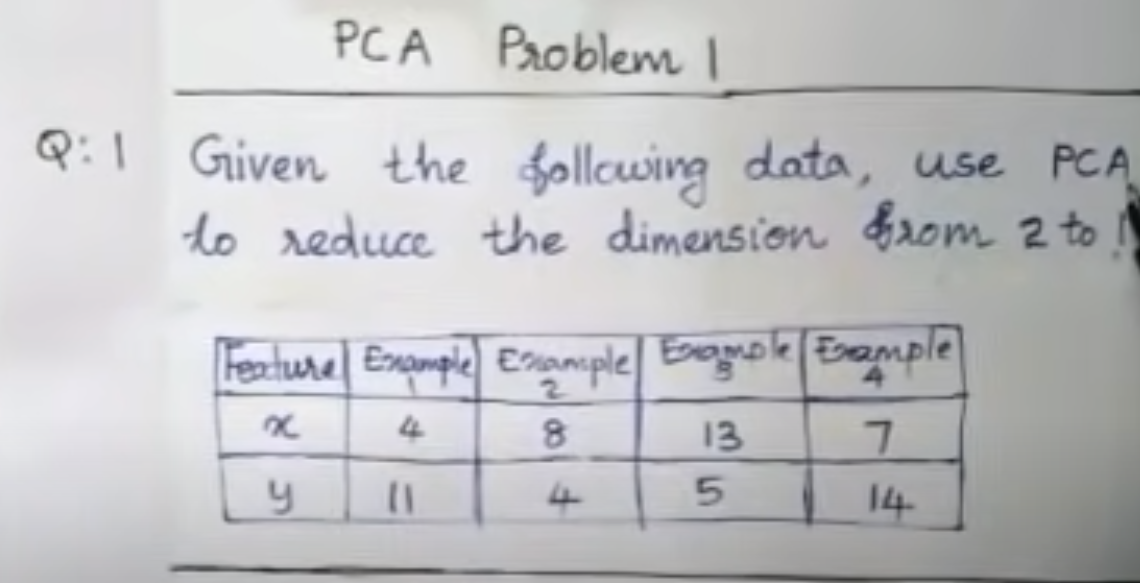 PCA Problem 1
Q: 1 Given the following data, use PCA
to reduce the dimension from 2 to 1
Feature Example 1 Example 2 Example 3 Example 4
x 4 8 13 7
y 11 4 5 14